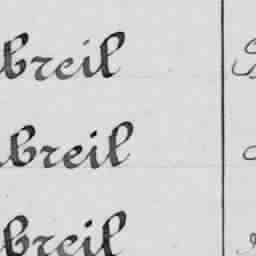 breil
breil
breil